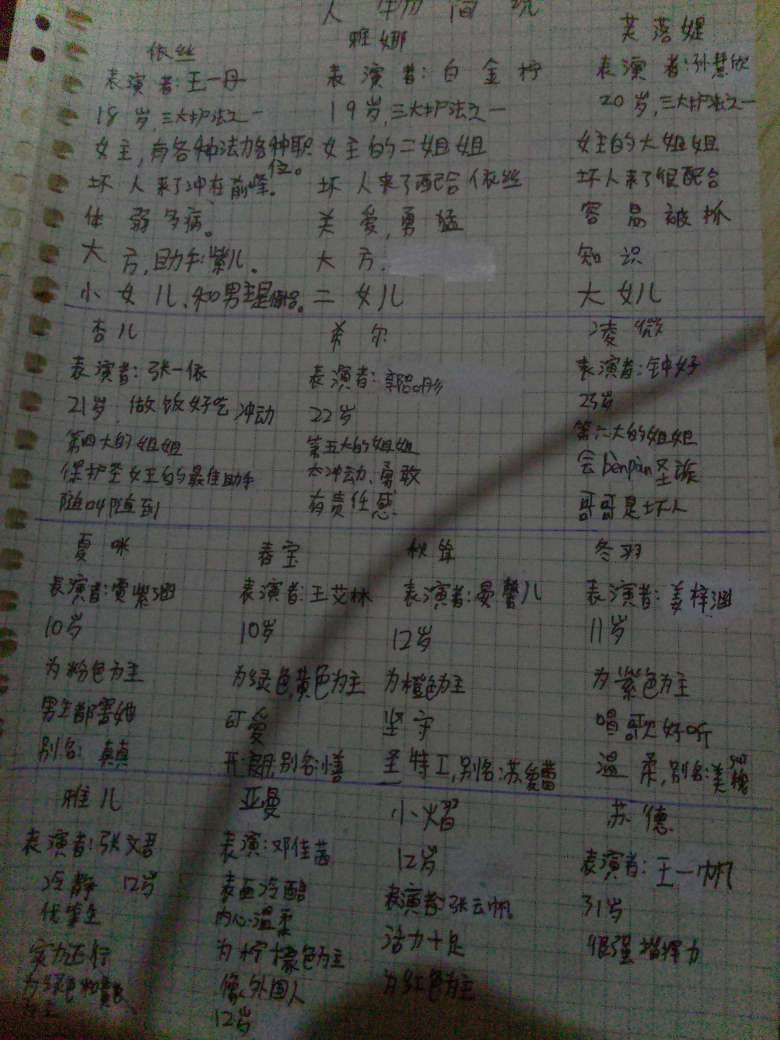 人物简说
依丝
表演者:王一丹
18岁,三大护法之一
女主,有各种法力各种职位。
坏人来了冲在前峰。
体弱多病。
大方,助手:紫儿。
小女儿,和男主是情侣。
雅娜
表演者:白金柠
19岁,三大护法之一
女主的二姐姐
坏人来了配合依丝
关爱,勇猛
大方.
二女儿
芙落媞
表演者:孙慧欣
20岁,三大护法之一
女主的大姐姐
坏人来了很配合
容易被抓
知识
大女儿
杏儿
表演者:张一依
21岁,做饭好吃 冲动
第四大的姐姐
保护圣女王的最佳助手
随叫随到
希尔
表演者:
22岁
第五大的姐姐
太冲动、勇敢
有责任感
凌微
表演者:钟好
23岁
第六大的姐姐
会bènpǎn圣族
哥哥是坏人
夏咪
表演者:贾紫涵
10岁
为粉色为主
男生都害她
别名:真真
春宝
表演者:王艾林
10岁
为绿色,黄色为主
可爱
开朗,别名:善
秋
表演者:晏馨儿
12岁
为橙色为主
坚守
圣特工,别名:苏
冬羽
表演者:姜梓涵
11岁
为紫色为主
唱歌好听
温柔,别名:美
雅儿
表演者:张文君
冷静 12岁
优等生
实力还行
为绿色和黄色
为主
亚曼
表演:邓佳茜
表面冷酷
内心温柔
为柠檬色为主
像外国人
12岁
小熠
12岁
表演者:张云帆
活力十足
为红色为主
苏德
表演者:王一帆
31岁
很强指挥力